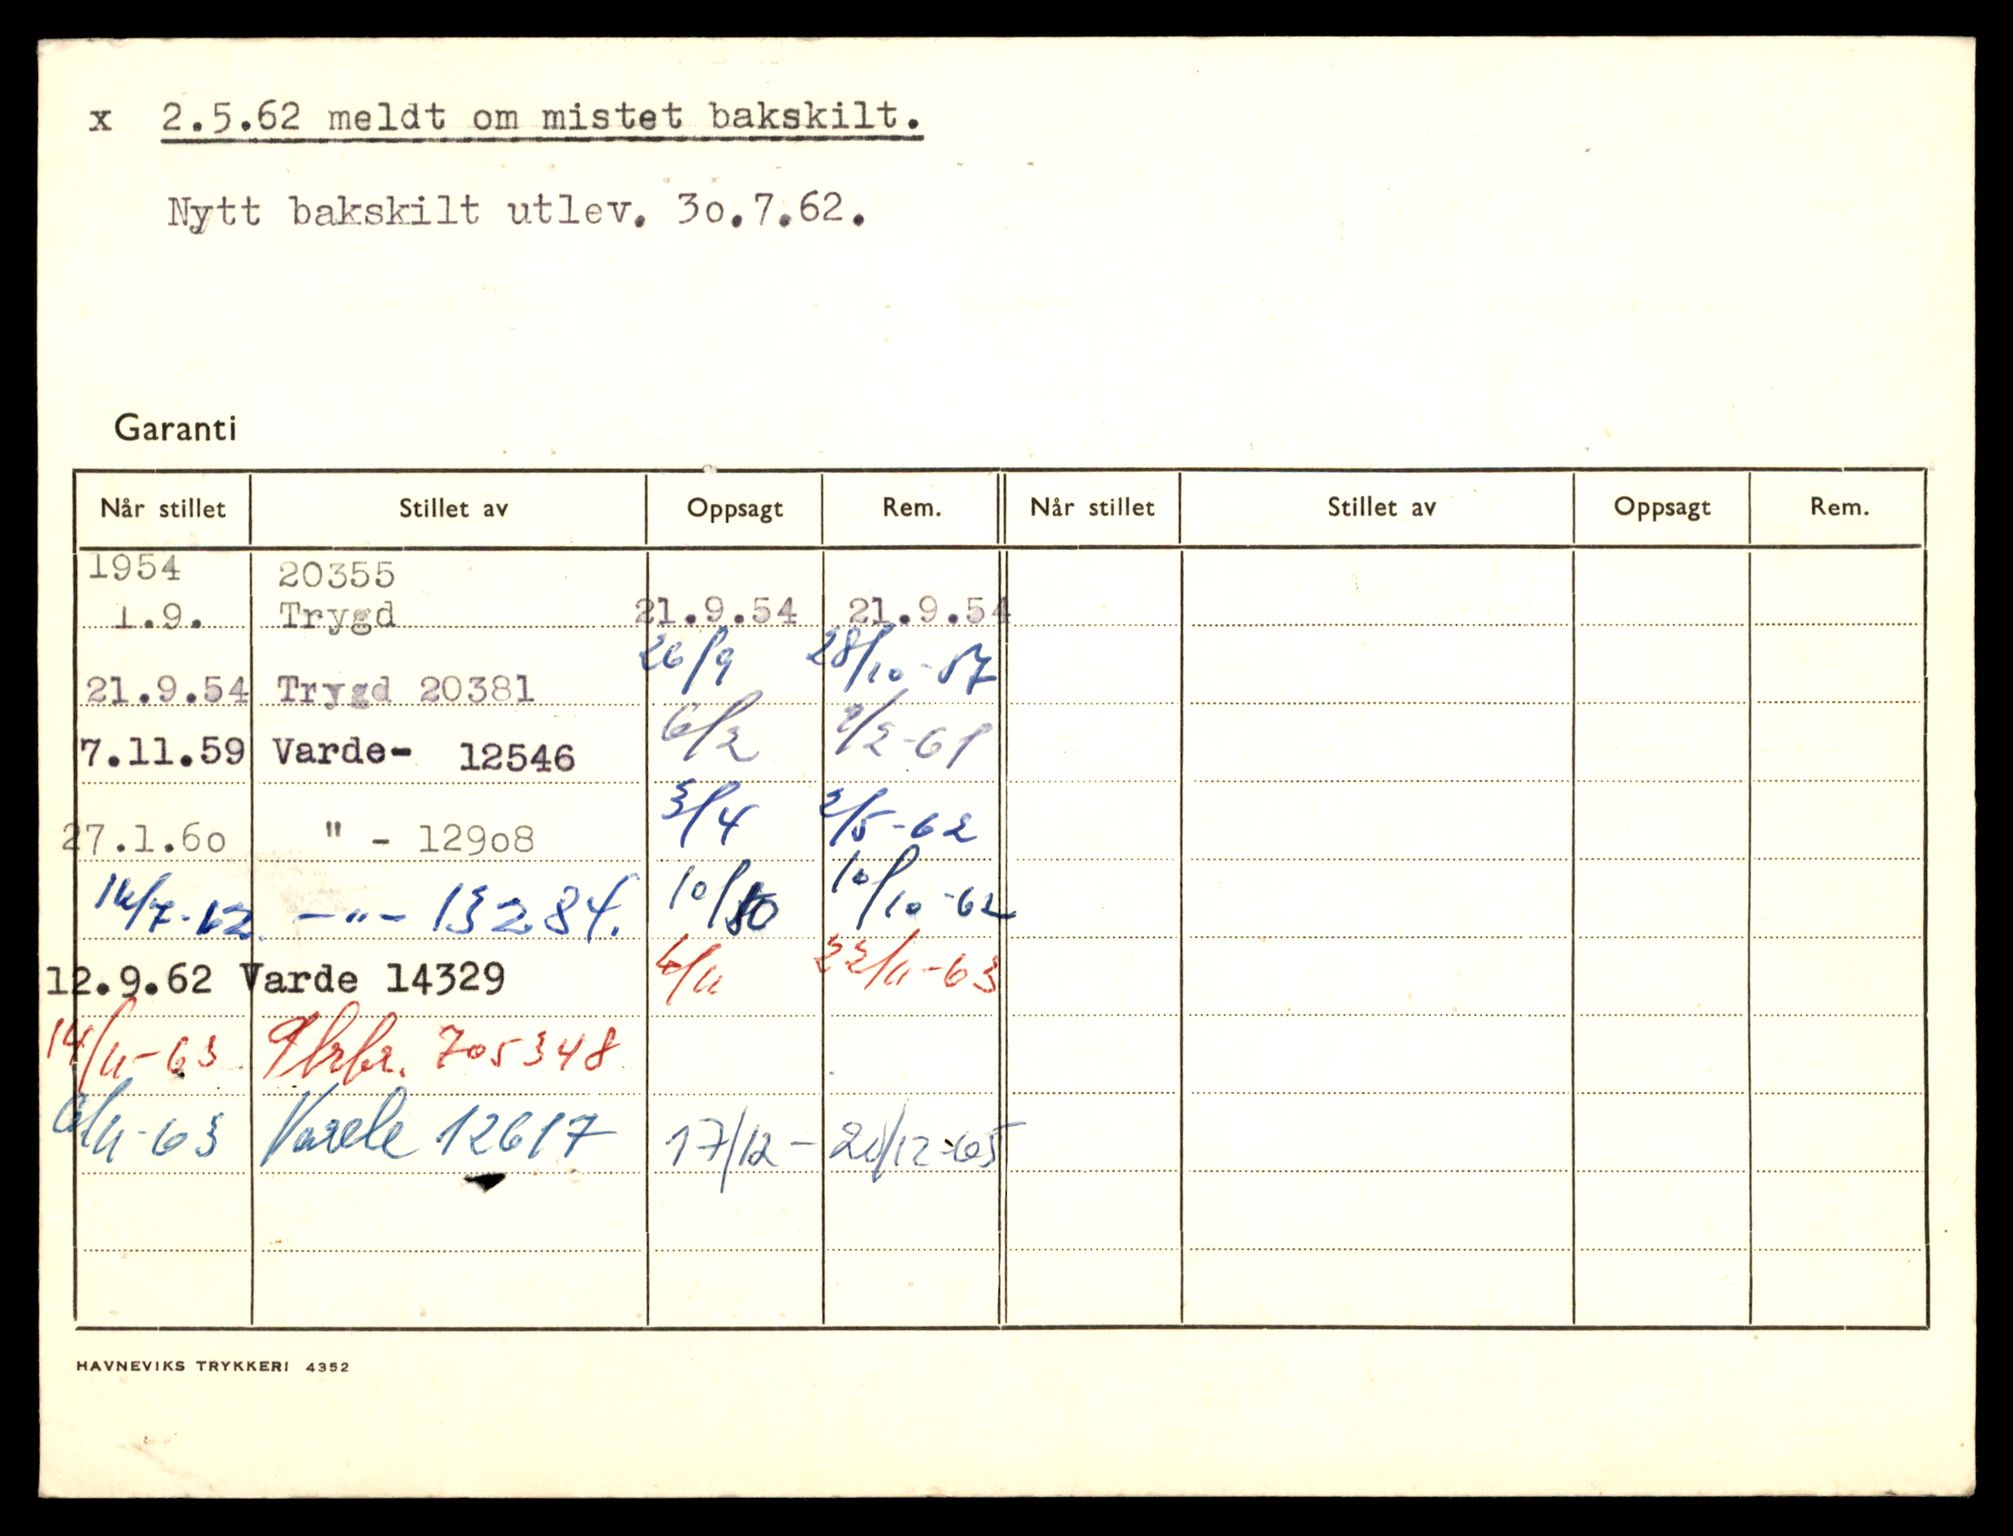 x 2.5.62 meldt om mistet bakskilt.
Nytt bakskilt utlev. 3o.7.62.
Garanti
Når stillet Stillet av Oppsagt Rem. Når stillet Stillet av Oppsagt Rem.
1954 20355
1.9. Trygd 21.9.54 21.9.54
26/9 28/10-57
21.9.54 Trygd 20381
6/2 2/2-61
7.11.59 Varde- 12546
3/4 2/5-62
27.1.6o " - 129o8
14/7-62 -"- 13284. 10/10 10/10-62
12.9.62 Varde 14329 4/11 22/11-63
14/11-63 705348
6/11-63 Varde 12617 17/12- 20/12-65
HAVNEVIKS TRYKKERI 4352